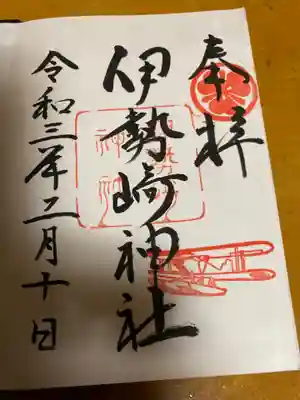 奉拝
伊勢崎神社
令和三年二月十日